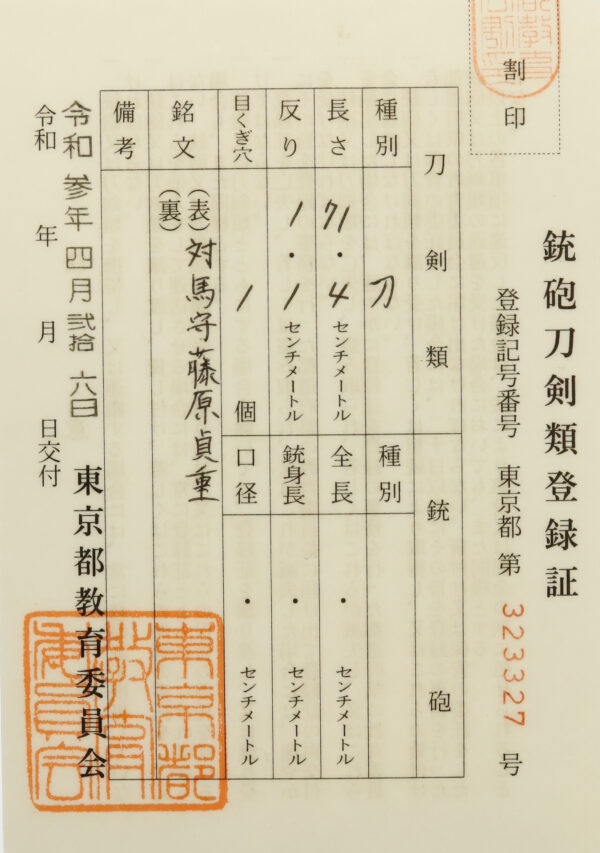 割印
銃砲刀剣類登録証
登録記号番号 東京都 第 323327 号
刀剣類
銃砲
種別 刀
種別
長さ 71・4 センチメートル
全長 ・ センチメートル
反り 1・1 センチメートル
銃身長 ・ センチメートル
目くぎ穴 1 個
口径 ・ センチメートル
銘文 (表) 対馬守藤原貞重
(裏)
備考
令和 参年 四月 弐拾六日
令和 年 月 日交付
東京都教育委員会
東京都
教育
委員会